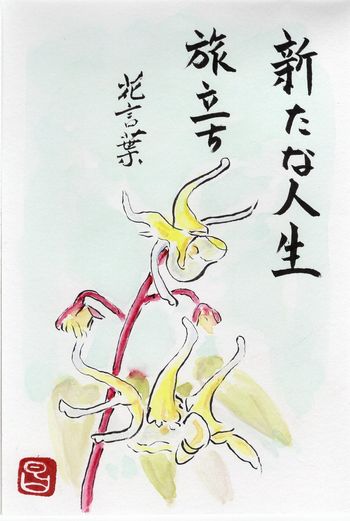 新たな人生
旅立ち
花言葉